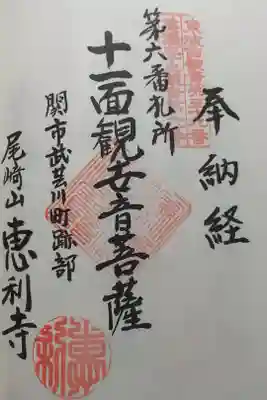 奉納経
第六番札所
十一面観世音菩薩
関市武芸川町跡部
尾崎山恵利寺
恵利